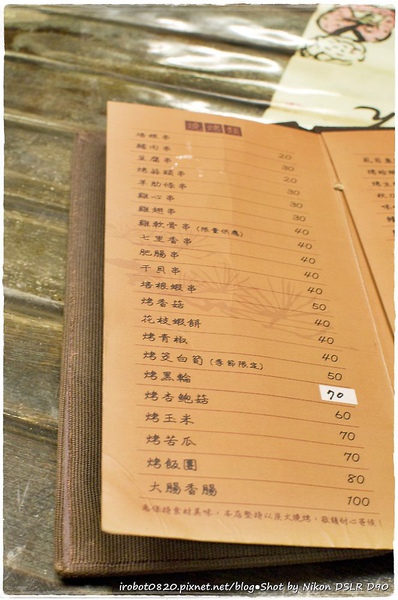 串 20
雞肉串 30
豆腐串 20
串 30
羊肋條串 30
雞心串 30
雞翅串 40
雞軟骨串 (限量供應) 40
七里香串 40
肥腸串 40
干貝串 40
培根蝦串 50
烤香菇 40
花枝蝦餅 40
烤青椒 40
烤茭白筍 (季節限定) 50
烤黑輪 70
烤杏鮑菇 60
烤玉米 70
烤苦瓜 70
烤飯團 80
大腸香腸 100
為保持食材美味，本店堅持以炭火燒烤，敬請耐心等候！
irobot0820.pixnet.net/blog●Shot by Nikon DSLR D90